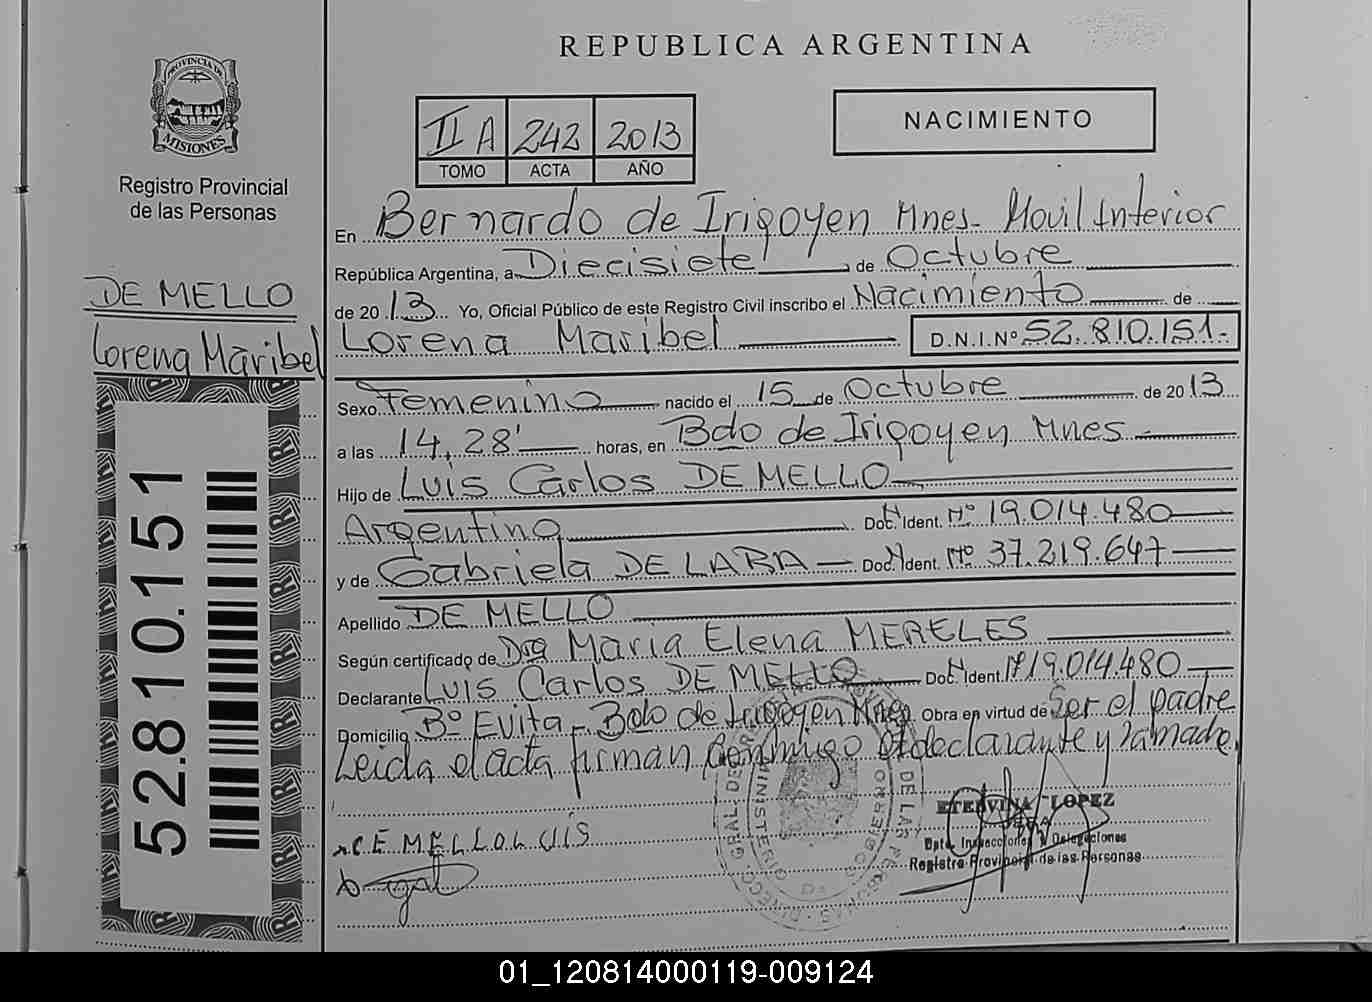 REPUBLICA ARGENTINA
PROVINCIA DE
MISIONES
Registro Provincial
de las Personas
II A 242 2013
TOMO ACTA AÑO
NACIMIENTO
DE MELLO
Lorena Maribel
52.810.151
En Bernardo de Irigoyen Mnes- Movil Interior
República Argentina, a Diecisiete de Octubre
de 2013 Yo, Oficial Público de este Registro Civil inscribo el Nacimiento de
Lorena Maribel D.N.I.Nº 52.810.151.-
Sexo Femenino nacido el 15 de Octubre de 2013
a las 14,28' horas, en Bdo de Irigoyen Mnes
Hijo de Luis Carlos DE MELLO
Argentino Doc. Ident. Nº 19.014.480
y de Gabriela DE LARA Doc. Ident. Nº 37.219.647
Apellido DE MELLO
Según certificado de Dra Maria Elena MERELES
Declarante Luis Carlos DE MELLO Doc. Ident. Nº 19.014.480
Domicilio Bº Evita - Bdo de Irigoyen Mnes Obra en virtud de Ser el padre
Leida el acta firman conmigo el declarante y la madre.
DE MELLO LUIS
LOPEZ
Dpto. Inspecciones y Delegaciones
Registro Provincial de las Personas
01_120814000119-009124